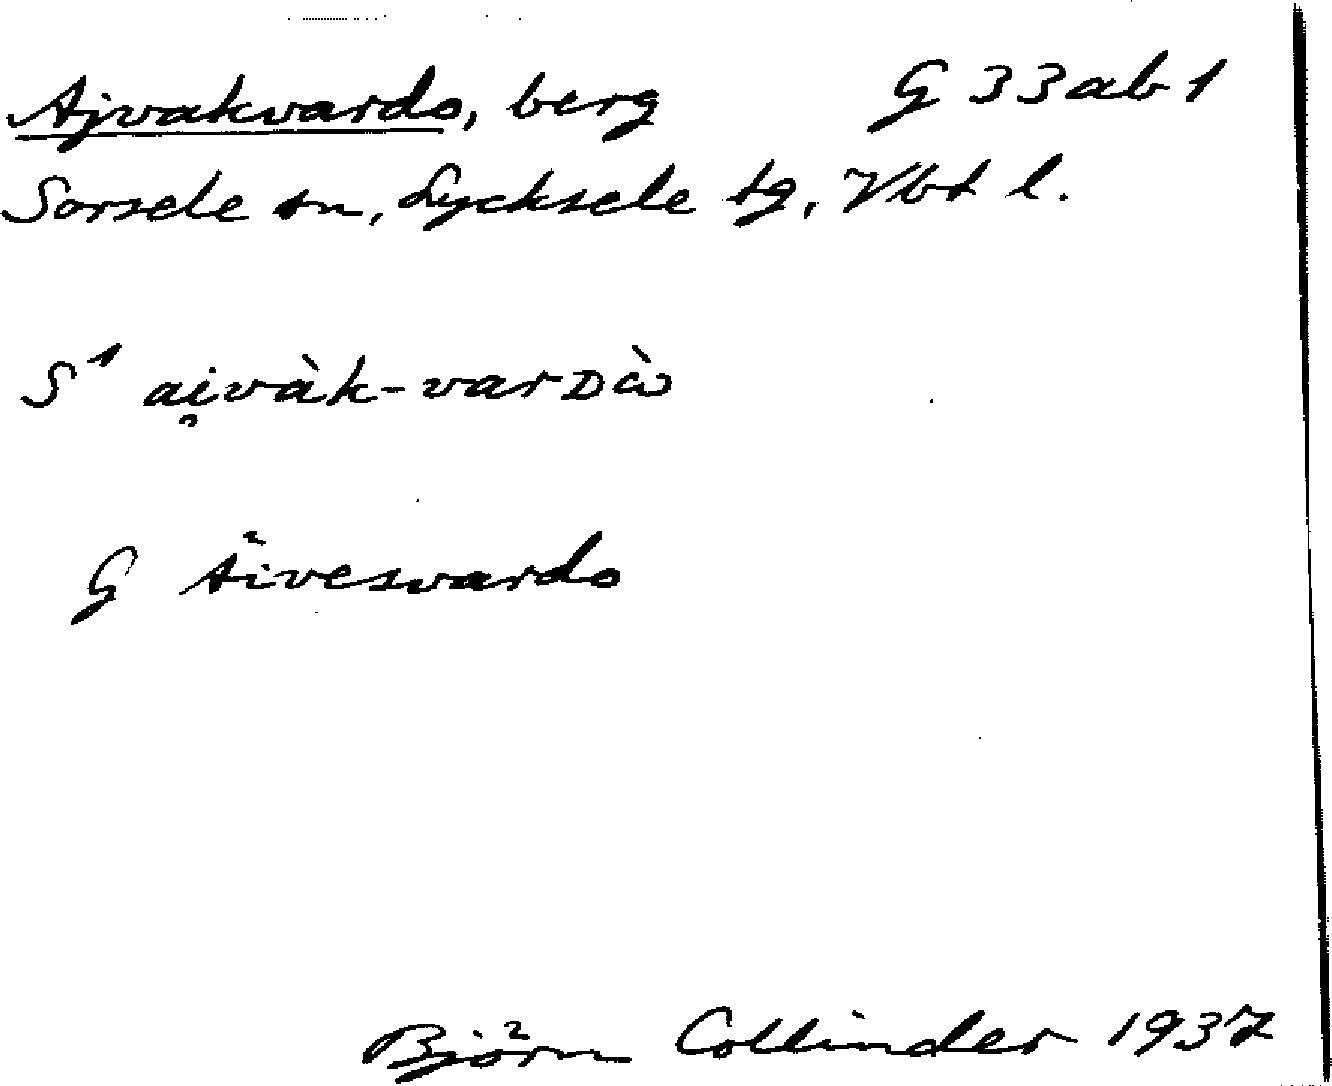 Ajvakvardo, berg G 33ab1
Sorsele sn, Lycksele tg, Vbt l.
S¹ ai̯vàk-varᴅὼ
G Äivesvardo
Björn Collinder 1937